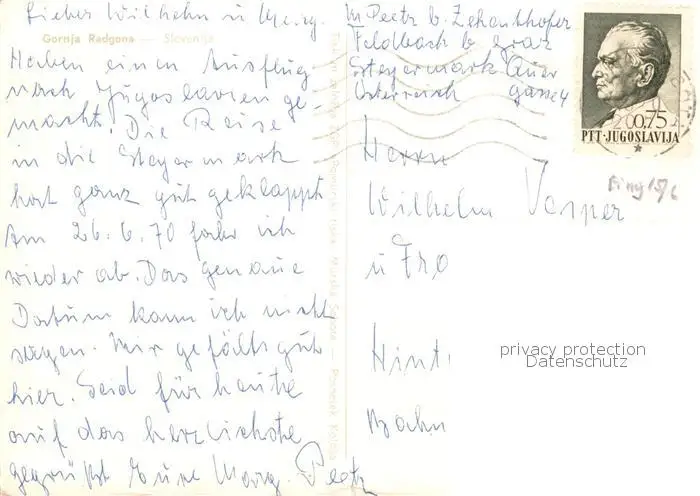 Lieber Wilhelm u
Gornja Radgona — Slovenija
Haben einen Ausflug
nach Jugoslavien ge-
macht. Die Reise
in die Steyermark
hat ganz gut geklappt
Am 26.6.70 fahr ich
wieder ab. Das genaue
Datum kann ich nicht
sagen. Mir gefällts gut
hier. Seid für heute
auf das herzlichste
gegrüßt Eure Marg. Peetz
M. Peetz b. Zehenthofer
Feldbach b Graz
Steyermark
Österreich gasse 4
0.75
PTT·JUGOSLAVIJA
15/6
Herrn
Wilhelm Vesper
u Fro
privacy protection
Datenschutz
Murska Sobota